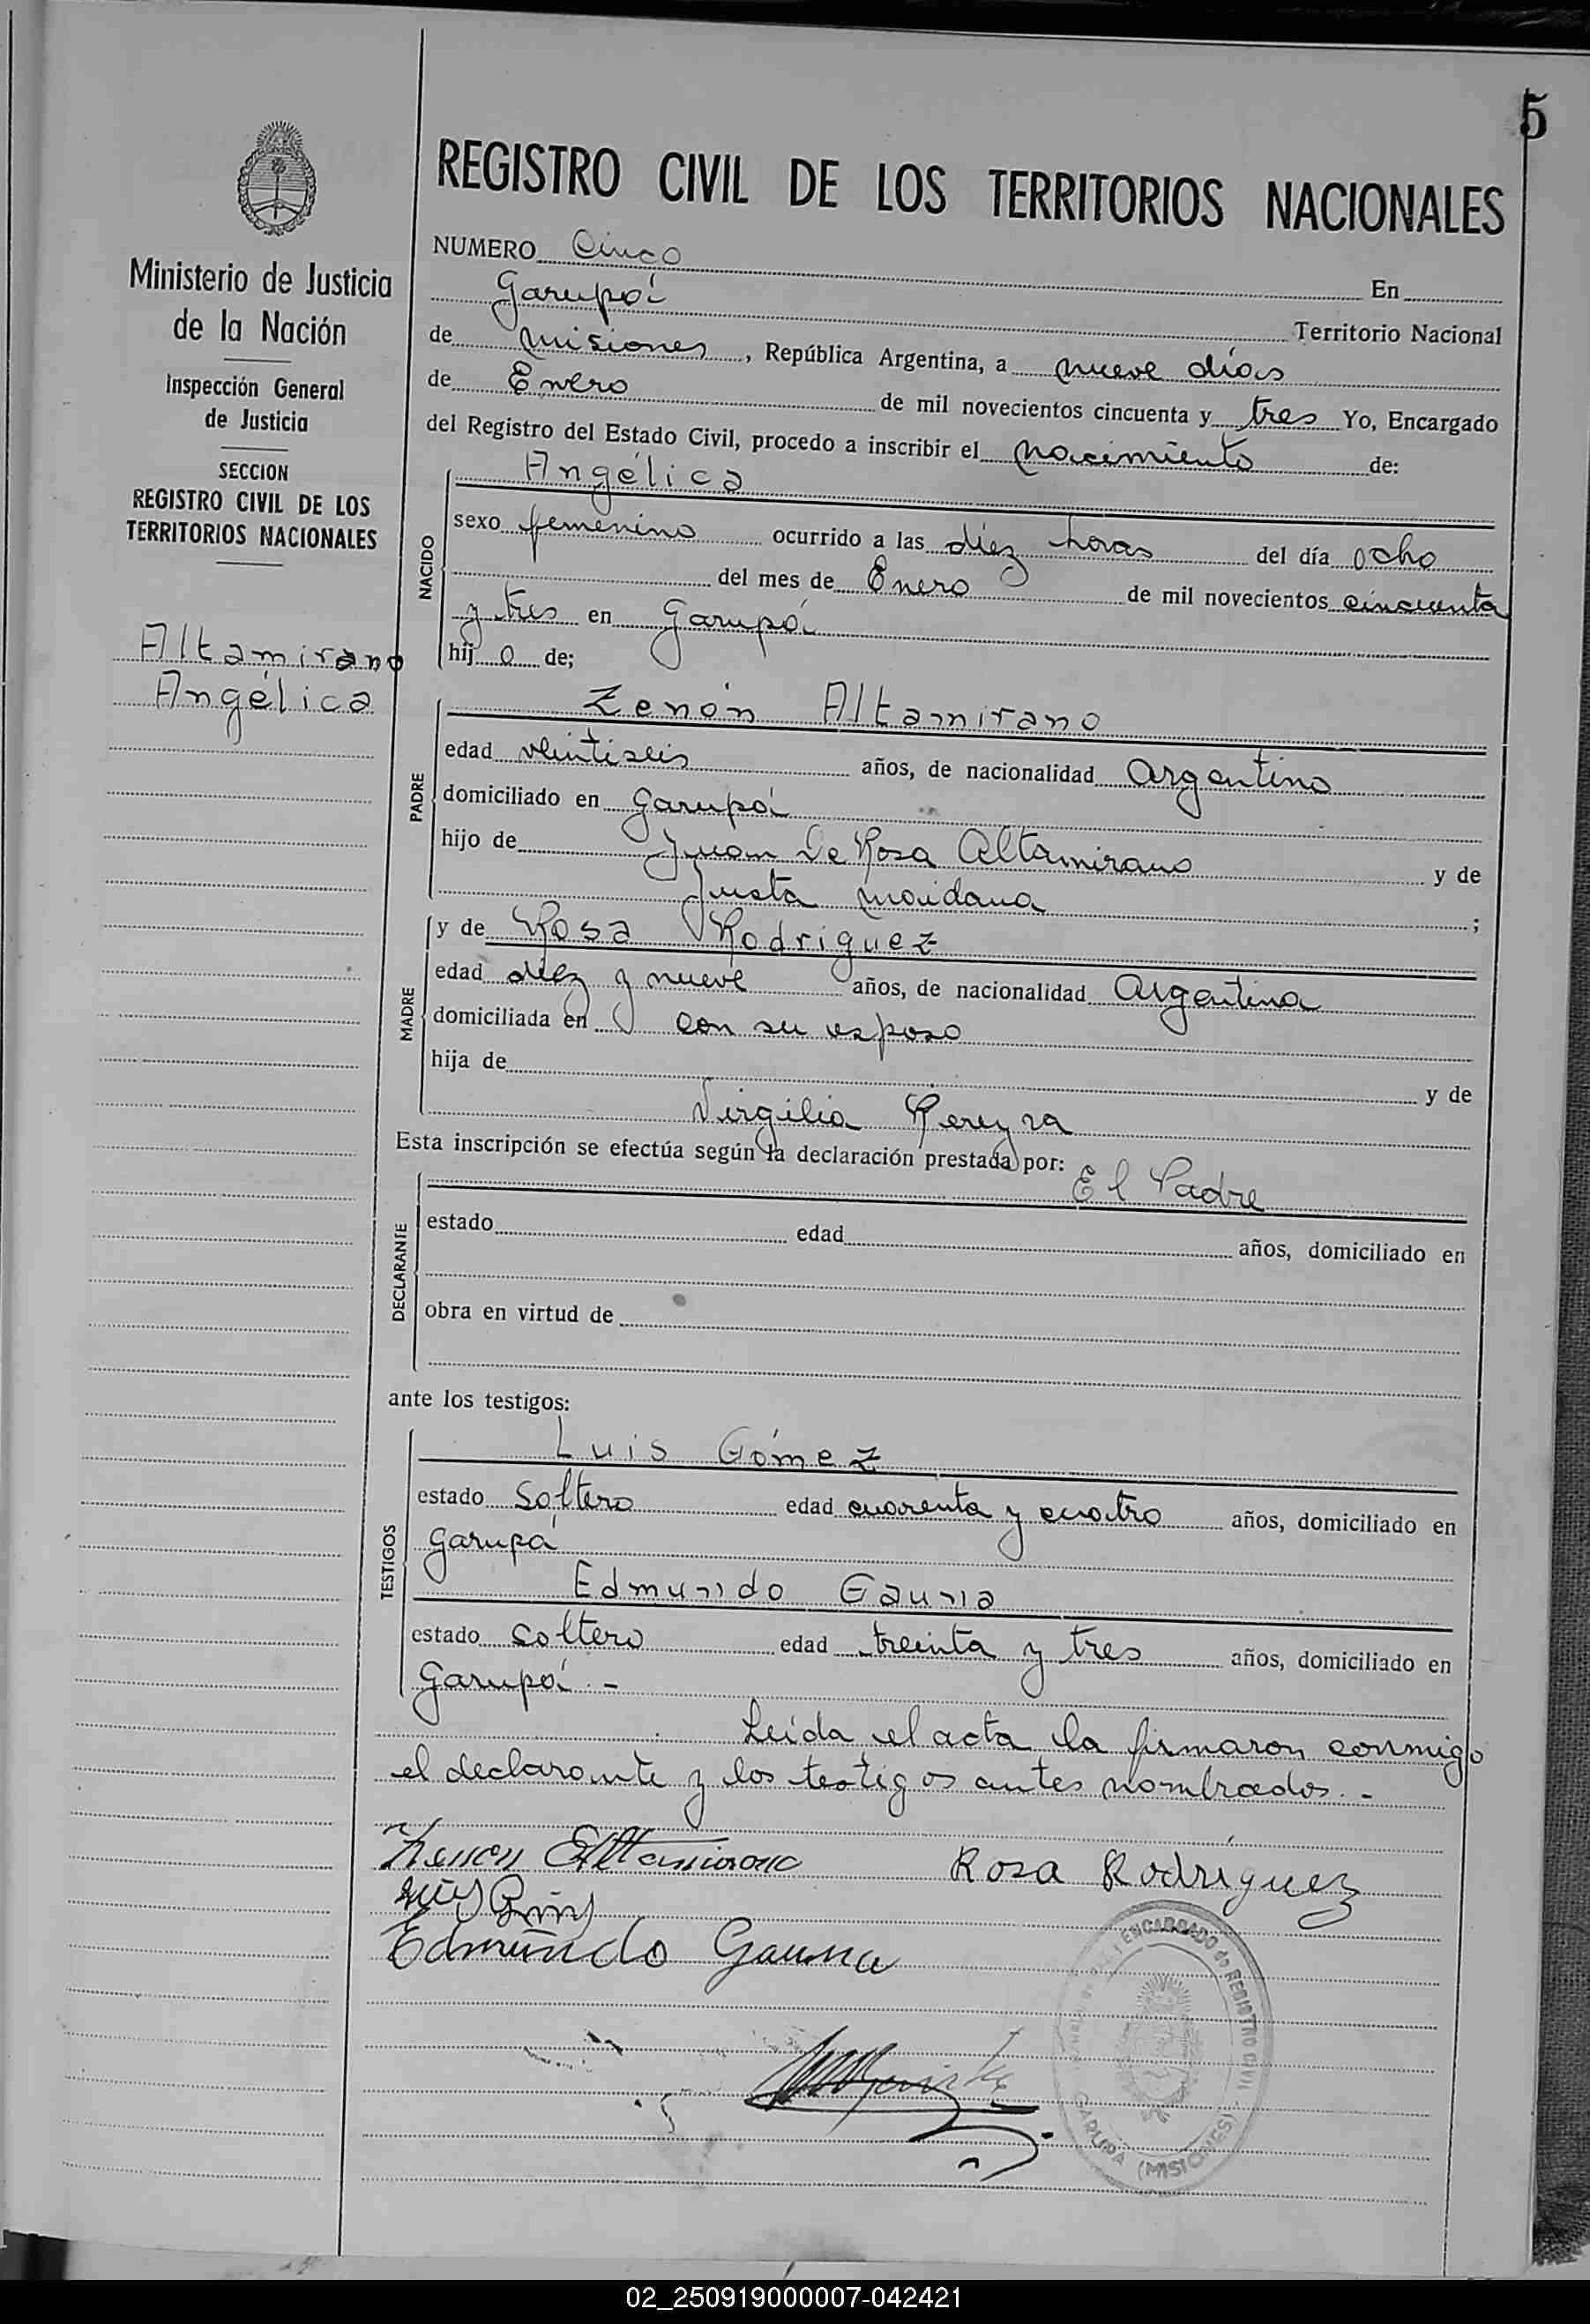 5
REGISTRO CIVIL DE LOS TERRITORIOS NACIONALES
Ministerio de Justicia
de la Nación
Inspección General
de Justicia
SECCION
REGISTRO CIVIL DE LOS
TERRITORIOS NACIONALES
Altamirano
Angélica
NUMERO Cinco En
Garupá Territorio Nacional
de Misiones, República Argentina, a nueve días
de Enero de mil novecientos cincuenta y tres Yo, Encargado
del Registro del Estado Civil, procedo a inscribir el nacimiento de:
NACIDO
Angélica
sexo femenino ocurrido a las diez horas del día ocho
del mes de Enero de mil novecientos cincuenta
y tres en Garupá
hij o de;
PADRE
Zenón Altamirano
edad veintiseis años, de nacionalidad Argentino
domiciliado en Garupá
hijo de Juan De Rosa Altamirano y de
Justa ;
MADRE
y de Rosa Rodriguez
edad diez y nueve años, de nacionalidad Argentina
domiciliada en con su esposo
hija de y de
Virgilia Pereyra
Esta inscripción se efectúa según la declaración prestada por:
El Padre
DECLARANTE
estado edad años, domiciliado en
obra en virtud de
ante los testigos:
TESTIGOS
Luis Gómez
estado Soltero edad cuarenta y cuatro años, domiciliado en
Garupá
Edmundo Gauna
estado soltero edad treinta y tres años, domiciliado en
Garupá.-
Leída el acta la firmaron conmigo
el declarante y los testigos antes nombrados.-
Zenon Altamirano Rosa Rodríguez
Edmundo Gauna
ENCARGADO de REGISTRO CIVIL
GARUPA (MISIONES)
02_250919000007-042421